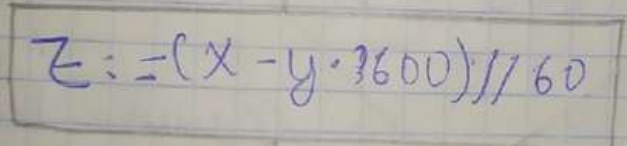 Z:=(x-y·3600)//60